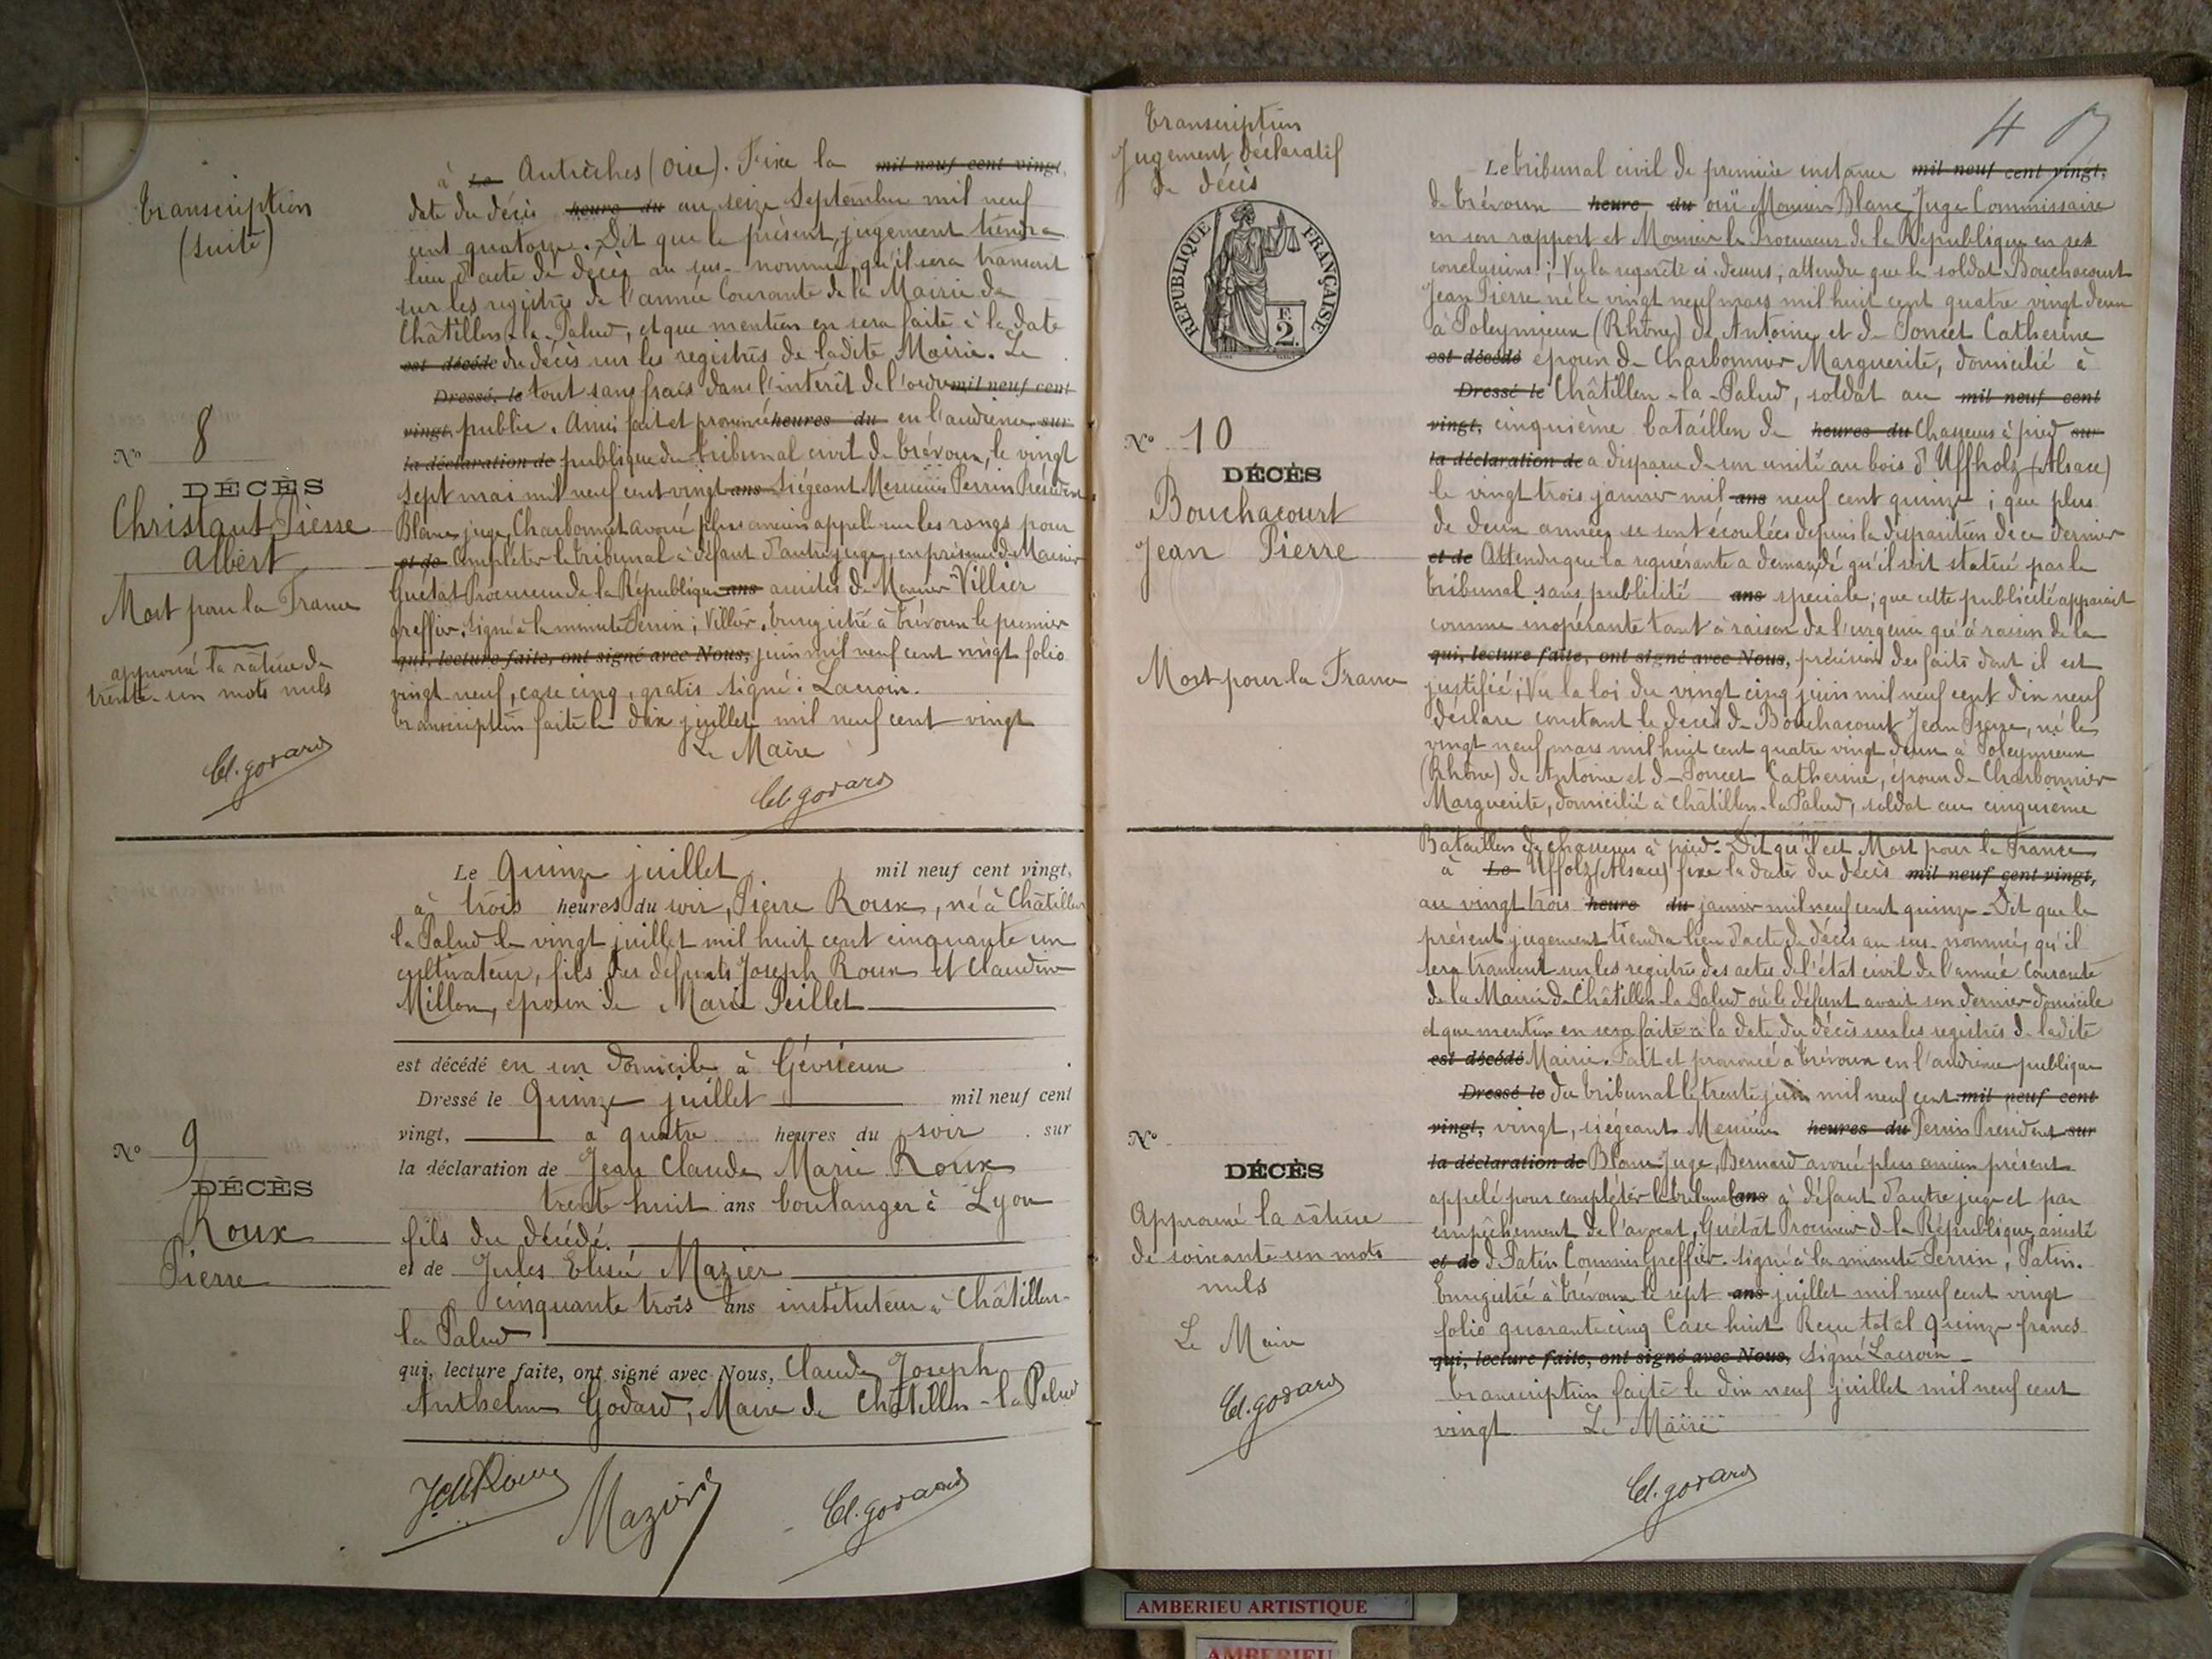 Transcription
(suite)
N° 8
DÉCÈS
Christaut Pierre
Albert
Mort pour la France
approuvé la rature de
trente-un mots nuls
Cl. godard
à Le Autrèches (Oise). Fixe la mil neuf cent vingt,
date du décès heure du au seize Septembre mil neuf
cent quatorze. Dit que le présent jugement tiendra
lieu d'acte de décès au sus-nommé, qu'il sera transcrit
sur les registres de l'année Courante de la Mairie de
Châtillon-la-Palud, et que mention en sera faite à la date
est décédé du décès sur les registres de ladite Mairie. Le
Dressé le tout sans frais dans l'intérêt de l'ordre mil neuf cent
vingt, public. Ainsi fait et prononcé heures du en l'audience sur
la déclaration de publique du tribunal civil de Trévoux, le vingt
sept mai mil neuf cent vingt ans Siégeant Messieurs Perrin Président
Blanc juge, Charbonnet avoué plus ancien appelé sur les rangs pour
et de Compléter le tribunal à défaut d'autre juge, en présence de Monsieur
Guétat Procureur de la République ans assistés de Monsieur Villier
greffier. Signé à la minute Perrin ; Villier. Enregistré à Trévoux le premier
qui, lecture faite, ont signé avec Nous, juin mil neuf cent vingt folio
vingt neuf, case cinq, gratis signé : Lacroix.
Transcription faite le dix juillet mil neuf cent vingt
Le Maire
Cl. godard
N° 9
DÉCÈS
Roux
Pierre
Le Quinze juillet mil neuf cent vingt,
à trois heures du soir, Pierre Roux, né à Châtillon
la Palud le vingt juillet mil huit cent cinquante un
cultivateur, fils des défunts Joseph Roux et Claudine
Millon, époux de Marie Peillet
est décédé en son domicile à Gévrieux
Dressé le Quinze juillet mil neuf cent
vingt, à quatre heures du soir sur
la déclaration de Jean Claude Marie Roux
trente huit ans boulanger à Lyon
fils du décédé.
et de Jules Elisé Mazier
cinquante trois ans instituteur à Châtillon-
la Palud
qui, lecture faite, ont signé avec Nous, Claude Joseph
Anthelme Godard, Maire de Châtillon-la-Palud
JCM Roux
Mazier
Cl. godard
Transcription
Jugement déclaratif
de décès
RÉPUBLIQUE FRANÇAISE
F.
2.
N° 10
DÉCÈS
Bouchacourt
Jean Pierre
Mort pour la France
4
Le tribunal civil de première instance mil neuf cent vingt,
de Trévoux heure du ouï Monsieur Blanc Juge Commissaire
en son rapport et Monsieur le Procureur de la République en ses
conclusions ; Vu la requête ci-dessus, attendu que le soldat Bouchacourt
Jean Pierre né le vingt neuf mars mil huit cent quatre vingt deux
à Poleymieux (Rhône) de Antoine et de Poncet Catherine
est décédé époux de Charbonnier Marguerite, domicilié à
Dressé le Châtillon-la-Palud, soldat au mil neuf cent
vingt, cinquième bataillon de heures du Chasseurs à pied sur
la déclaration de a disparu de son unité au bois d'Uffholz (Alsace)
le vingt trois janvier mil ans neuf cent quinze ; que plus
de deux années se sont écoulées depuis la disparition de ce dernier
et de Attendu que la requérante a demandé qu'il soit statué par le
tribunal sans publicité ans spéciale ; que cette publicité apparait
comme inopérante tant à raison de l'urgence qu'à raison de la
qui, lecture faite, ont signé avec Nous, précision des faits dont il est
justifié ; Vu la loi du vingt cinq juin mil neuf cent dix neuf
déclare constant le décès de Bouchacourt Jean Pierre, né le
vingt neuf mars mil huit cent quatre vingt deux à Poleymieux
(Rhône) de Antoine et de Poncet Catherine, époux de Charbonnier
Marguerite, domicilié à Châtillon-la Palud, soldat au cinquième
Bataillon de chasseurs à pied. Dit qu'il est Mort pour la France
à Le Uffolz (Alsace) fixe la date du décès mil neuf cent vingt,
au vingt trois heure du janvier mil neuf cent quinze - Dit que le
présent jugement tiendra lieu d'acte de décès au sus-nommé, qu'il
sera transcrit sur les registres des actes de l'état civil de l'année Courante
de la Mairie de Châtillon la Palud où le défunt avait son dernier domicile
et que mention en sera faite à la date du décès sur les registres de ladite
est décédé Mairie. Fait et prononcé à Trévoux en l'audience publique
Dressé le du tribunal le trente juin mil neuf cent mil neuf cent
vingt, vingt, siégeant Messieurs heures du Perrin Président sur
la déclaration de Blanc Juge, Bernard avoué plus ancien présent
appelé pour compléter le tribunal ans à défaut d'autre juge et par
empêchement de l'avocat, Guétat Procureur de la République assisté
et de de Patin Commis Greffier. Signé à la minute Perrin, Patin.
Enregistré à Trévoux le sept ans juillet mil neuf cent vingt
folio quarante cinq Case huit Reçu total quinze francs
qui, lecture faite, ont signé avec Nous, Signé Lacroix -
Transcription faite le dix neuf juillet mil neuf cent
vingt Le Maire
Cl. godard
N°
DÉCÈS
Approuvé la rature
de soixante un mots
nuls
Le Maire
Cl. godard
AMBERIEU ARTISTIQUE
AMBERIEU